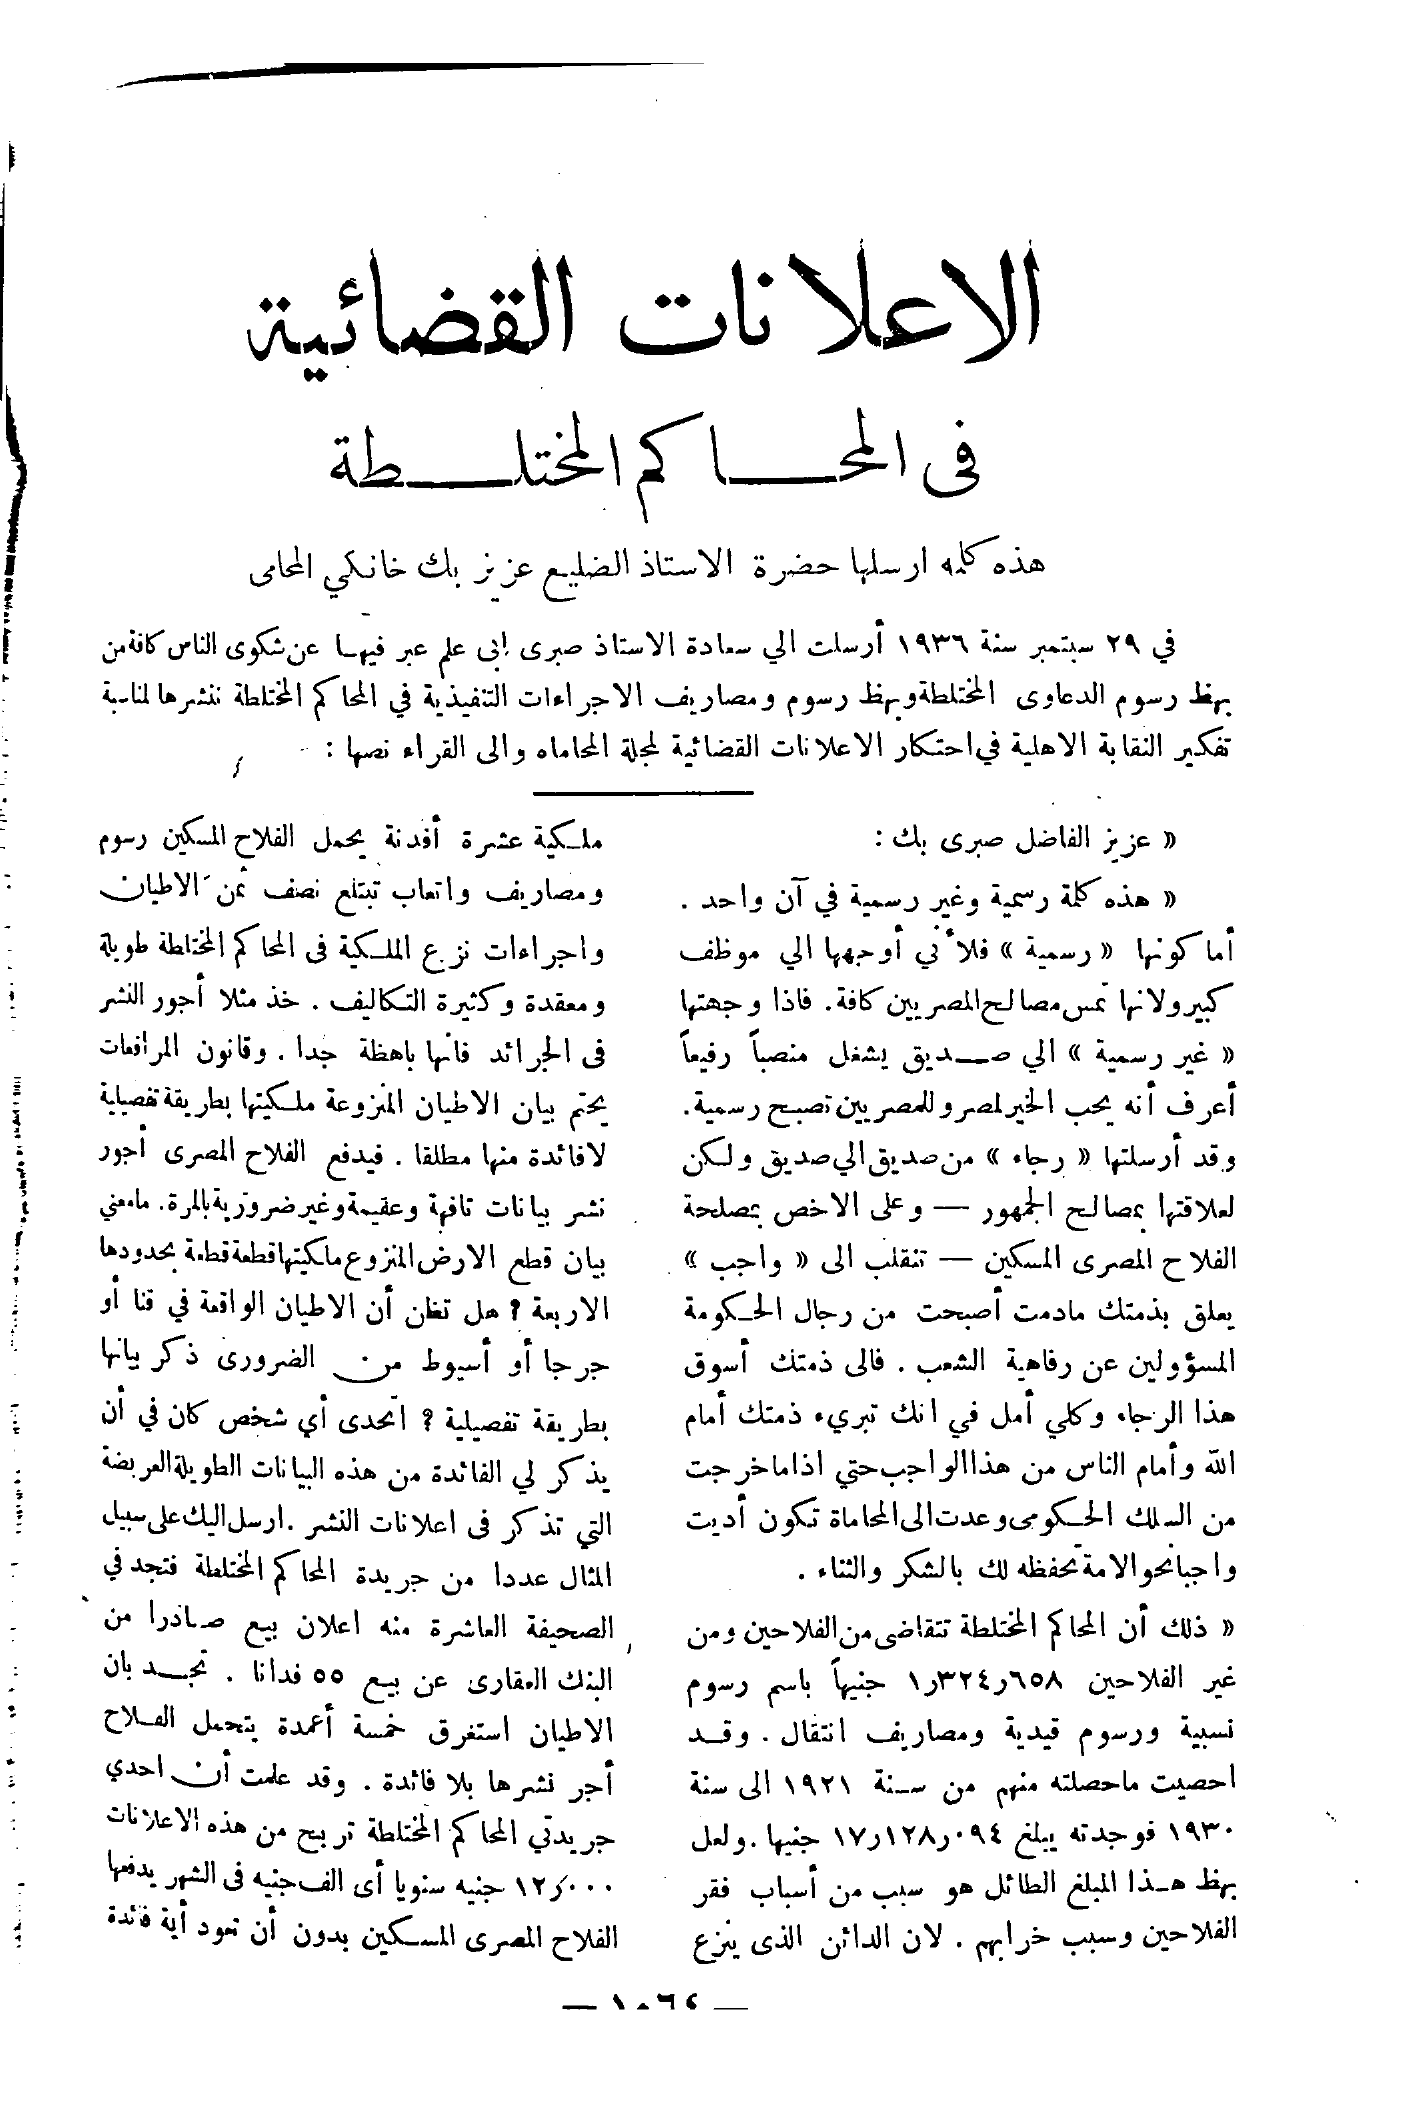 الاعلانات القضائية
فى المحاكم المختلطة
هذه كلمه ارسلها حضرة الاستاذ الضليع عزيز بك خانكي المحامى
في ٢٩ سبتمبر سنة ١٩٣٦ أرسلت الي سعادة الاستاذ صبرى إبى علم عبر فيها عن شكوى الناس كافة من
بهظ رسوم الدعاوى المختلطة وبهظ رسوم ومصاريف الاجراءات التنفيذية في المحاكم المختلطة ننشرها لمناسبة
تفكير النقابة الاهلية في احتكار الاعلانات القضائية لمجلة المحاماه والى القراء نصها :
« عزيز الفاضل صبرى بك :
« هذه كلمة رسمية وغير رسمية في آن واحد .
أما كونها « رسمية » فلأني أوجهها الي موظف
كبير ولانها تمس مصالح المصريين كافة . فاذا وجهتها
« غير رسمية » الي صديق يشغل منصباً رفيعاً
أعرف أنه يحب الخير لمصر وللمصريين تصبح رسمية .
وقد أرسلتها « رجاء » من صديق الي صديق ولكن
لعلاقتها بمصالح الجمهور — وعلى الاخص بمصلحة
الفلاح المصرى المسكين — تنقلب الى « واجب »
يعلق بذمتك مادمت أصبحت من رجال الحكومة
المسؤولين عن رفاهية الشعب . فالى ذمتك أسوق
هذا الرجاء وكلي أمل في انك تبريء ذمتك أمام
الله وأمام الناس من هذا الواجب حتي اذا ما خرجت
من السلك الحكومى وعدت الى المحاماة تكون أديت
واجبا نحو الامة تحفظه لك بالشكر والثناء .
« ذلك أن المحاكم المختلطة تتقاضى من الفلاحين ومن
غير الفلاحين ٦٥٨ر٣٢٤ر١ جنيهاً باسم رسوم
نسبية ورسوم قيدية ومصاريف انتقال . وقد
احصيت ما حصلته منهم من سنة ١٩٢١ الى سنة
١٩٣٠ فوجدته يبلغ ٠٩٤ر١٢٨ر١٧ جنيها . ولعل
بهظ هذا المبلغ الطائل هو سبب من أسباب فقر
الفلاحين وسبب خرابهم . لان الدائن الذى ينزع
ملكية عشرة أفدنة يحمل الفلاح المسكين رسوم
ومصاريف واتعاب تبتلع نصف ثمن الاطيان
واجراءات نزع الملكية فى المحاكم المختلطة طويلة
ومعقدة وكثيرة التكاليف . خذ مثلا أجور النشر
فى الجرائد فانها باهظة جدا . وقانون المرافعات
يحتم بيان الاطيان المنزوعة ملكيتها بطريقة تفصيلية
لا فائدة منها مطلقا . فيدفع الفلاح المصرى أجور
نشر بيانات تافهة وعقيمة وغير ضرورية بالمرة . مامعني
بيان قطع الارض المنزوع ملكيتها قطعة قطعة بحدودها
الاربعة ? هل تظن أن الاطيان الواقعة في قنا أو
جرجا أو أسيوط من الضرورى ذكر بيانها
بطريقة تفصيلية ? اتحدى أي شخص كان في أن
يذكر لي الفائدة من هذه البيانات الطويلة العريضة
التي تذكر فى اعلانات النشر . ارسل اليك على سبيل
المثال عددا من جريدة المحاكم المختلطة فتجد في
الصحيفة العاشرة منه اعلان بيع صادرا من
البنك العقارى عن بيع ٥٥ فدانا . تجد بان
الاطيان استغرق خمسة أعمدة يتحمل الفلاح
أجر نشرها بلا فائدة . وقد علمت أن احدي
جريدتي المحاكم المختلطة تربح من هذه الاعلانات
٠٠٠ر١٢ جنيه سنويا أى الف جنيه فى الشهر يدفعها
الفلاح المصرى المسكين بدون أن تعود أية فائدة